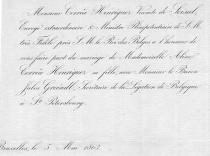 Monsieur Corrêa Henriques, Vicomte de Seisal,
Envoyé extraordinaire & Ministre Plénipotentiaire de S. M.
très Fidèle près S. M. le Roi des Belges a l'honneur de
vous faire part du mariage de Mademoiselle
Corrêa Henriques, sa fille, avec Monsieur le Baron
Jules Greindl, Secrétaire de la Légation de Belgique
à St Pétersbourg.
Bruxelles, le 5 Mai